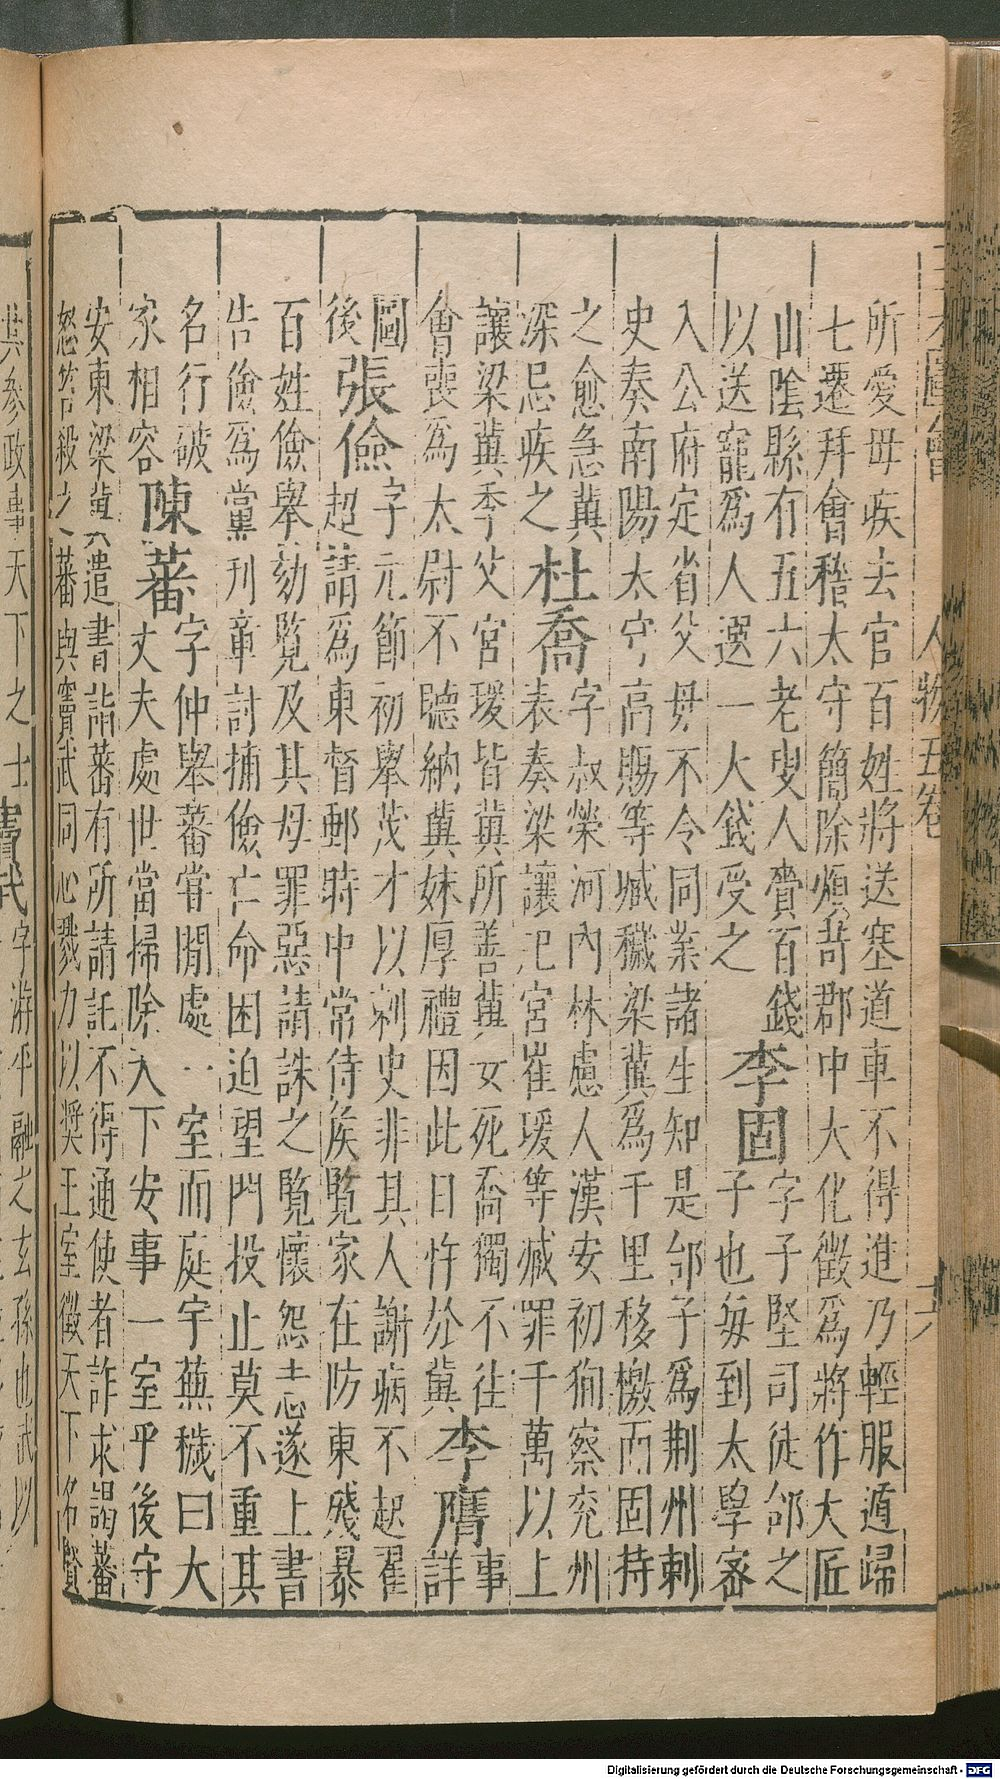 三才圖會 人物五卷 十六
所愛毋疾去官百姓將送塞道車不得進乃輕服遁歸
七遷拜會稽太守簡除煩苛郡中大化徵爲將作大匠
山陰縣有五六老叟人賫百錢
以送寵爲人選一大錢受之
李固
字子堅司徒郃之
子也每到太學密
入公府定省父毋不令同業諸生知是郃子爲荆州刺
史奏南陽太守高賜等臧穢梁冀爲千里移檄而固持
之愈急冀
深忌疾之
杜喬
字叔榮河內林慮人漢安初徇察兖州
表奏梁讓氾宮崔瑗等臧罪千萬以上
讓梁冀季父宮瑗皆冀所善冀女死喬獨不往
會喪爲太尉不聽納冀妹厚禮因此日忤於冀
李膺
事
詳
圖
後
張儉
字元節初舉茂才以刺史非其人謝病不起翟
超請爲東督郵時中常侍侯覽家在防東殘暴
百姓儉舉劾覽及其母罪惡請誅之覽懷怨恚遂上書
告儉爲黨刋章討捕儉亡命困迫望門投止莫不重其
名行破
家相容
陳蕃
字仲舉蕃嘗閒處一室而庭宇蕪穢曰大
丈夫處世當掃除天下安事一室乎後守
安東梁冀大遣書詣蕃有所請託不得通使者詐求謁蕃
怒笞殺之蕃與竇武同心戮力以奬王室徵天下名賢
共參政事天下之士
竇武
字游平融之玄孫也武以
Digitalisierung gefördert durch die Deutsche Forschungsgemeinschaft - DFG